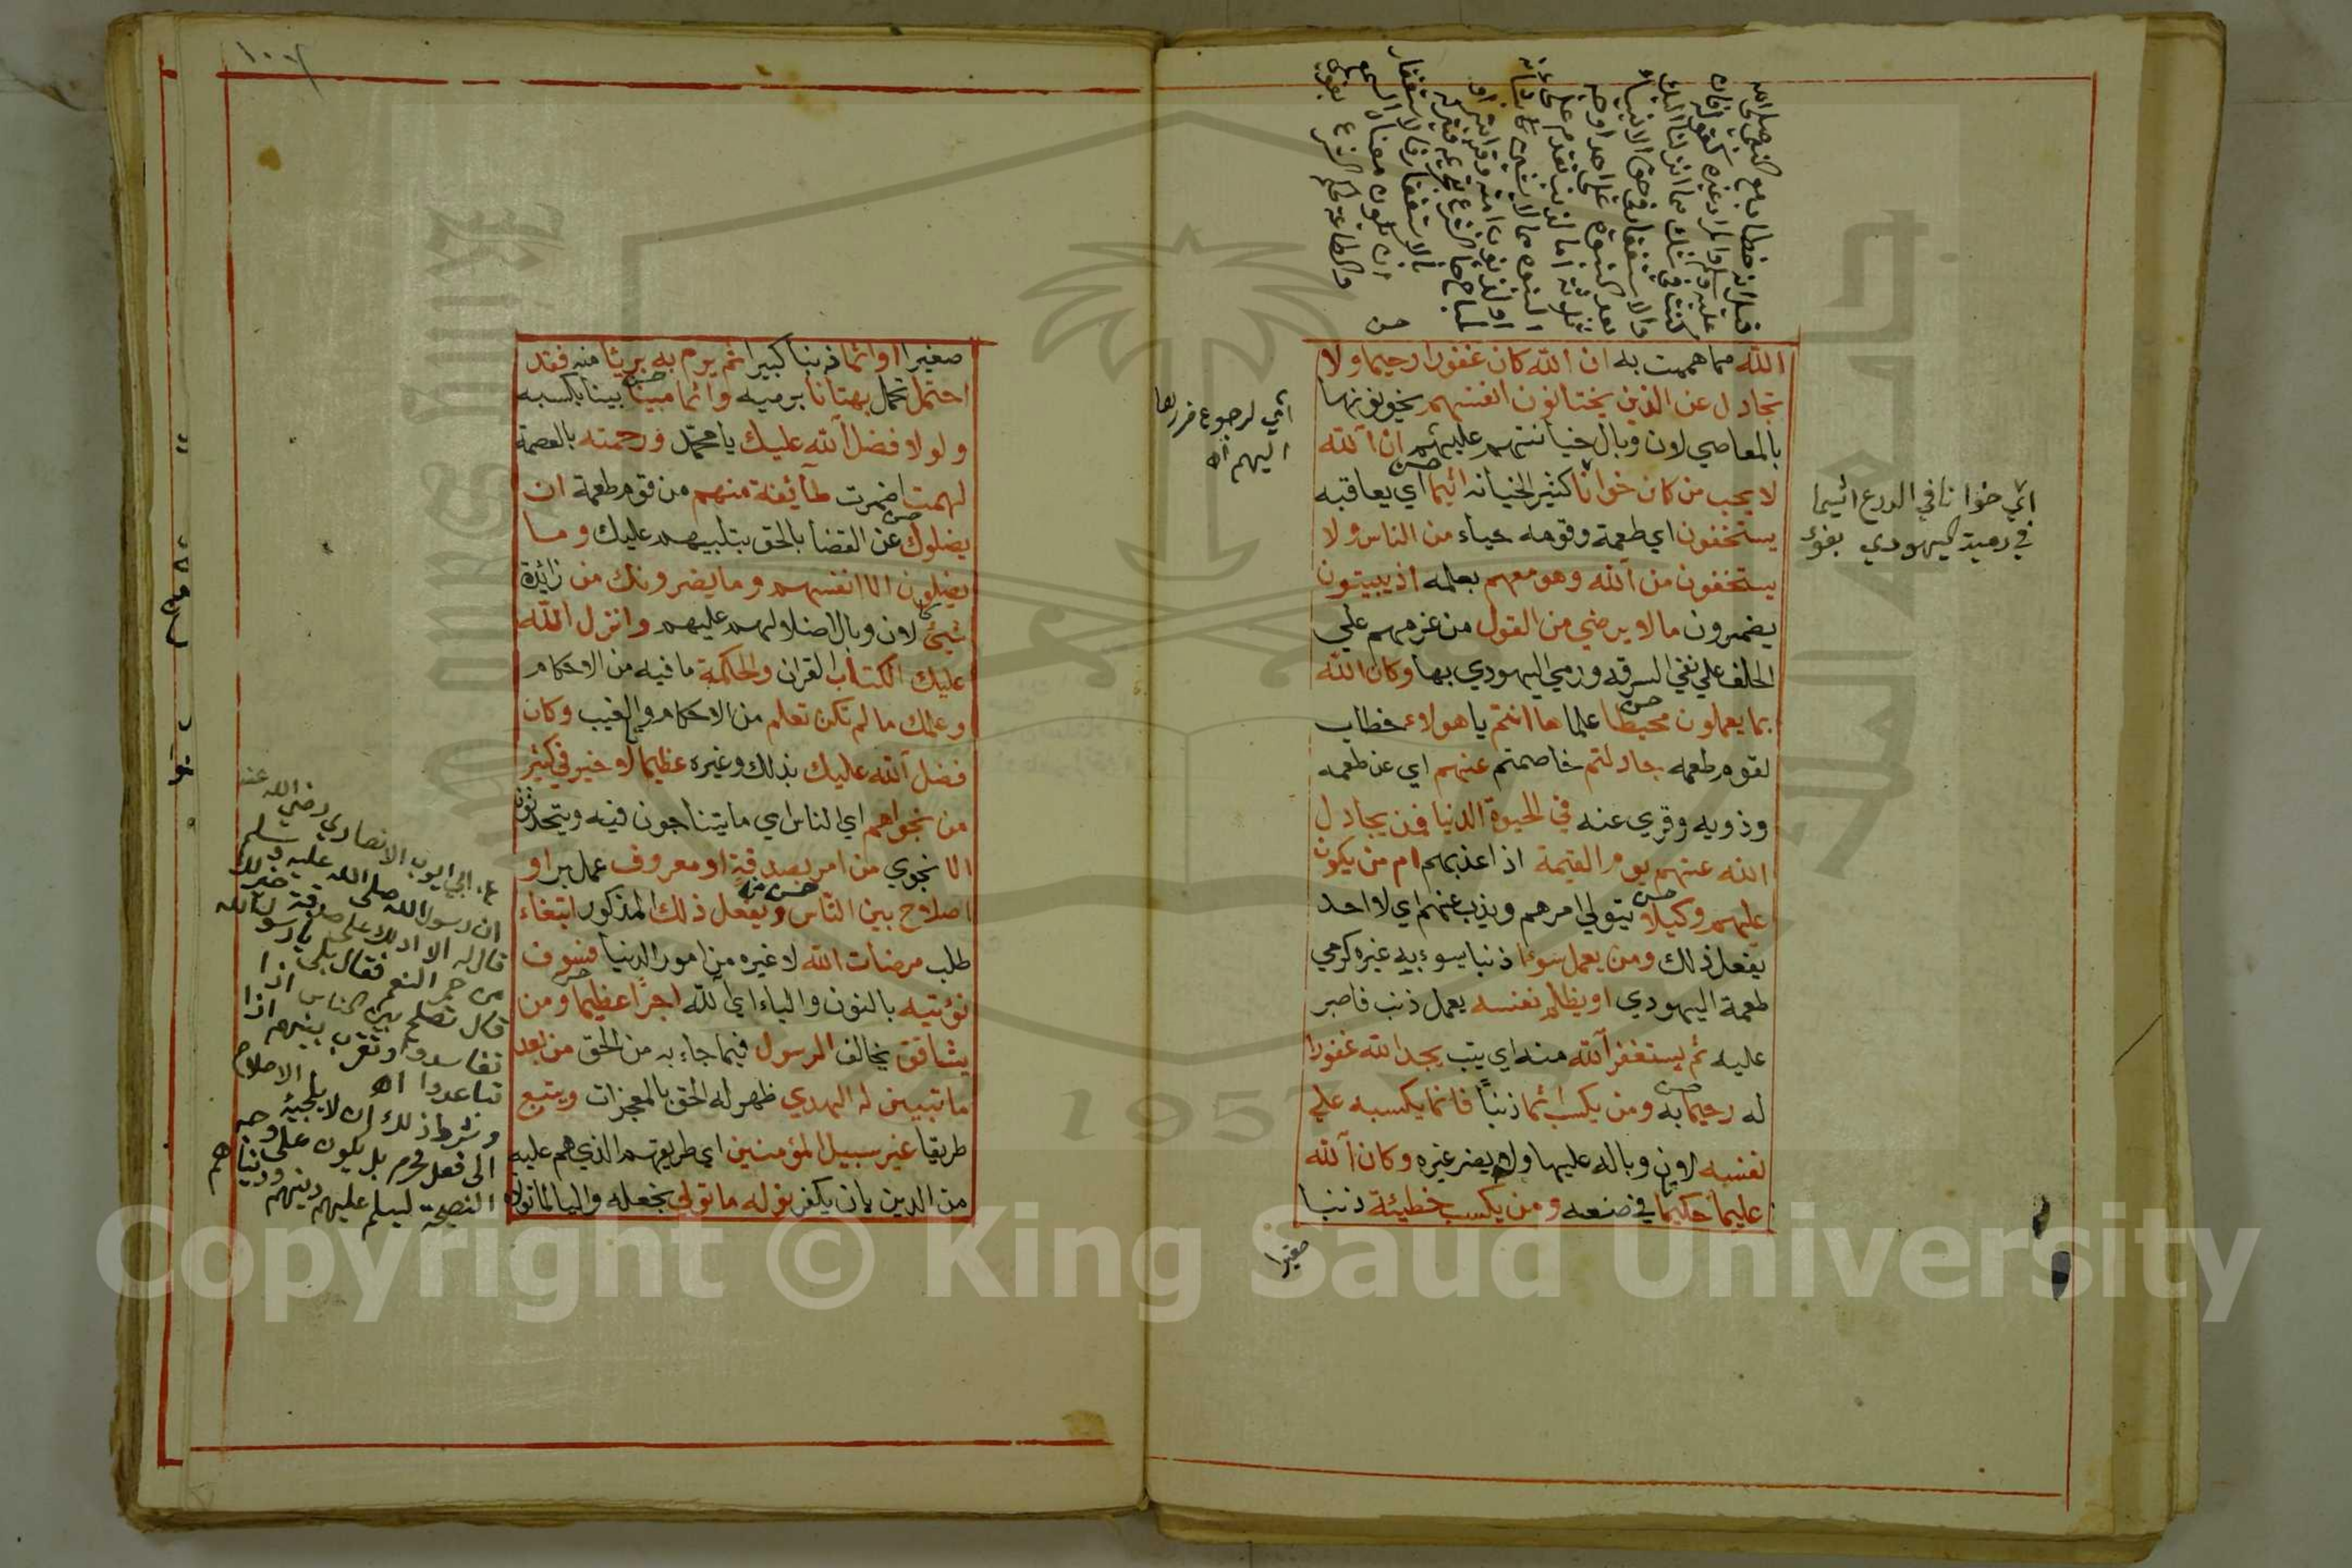 قيل انه خطاب مع النبي صلى الله
عليه وسلم والمراد غيره كقوله فان
كنت في شك مما انزلنا اليك
والاستغفار في حق الانبياء
بعد النبوة على احد اوجه
ثلاثة اما لذنب تقدم على
النبوة
او لذنوب امته وقرابته او
لمباح جاء الشرع بتحريمه فيتركه
بالاستغفار فالاستغفار
ان يكون معناه السمع
والطاعة لحكم الشرع بغوي
حسن
الله مما هممت به ان الله كان غفورا رحيما ولا
تجادل عن الذين يختانون انفسهم يخونونها
بالمعاصي لان وبال خيانتهم عليهم ان الله
لا يحب من كان خوانا كثير الخيانه اثيما اي يعاقبه
يستخفون اي طعمة وقومه حياء من الناس ولا
يستخفون من الله وهو معهم بعلمه اذ يبيتون
يضمرون ما لا يرضي من القول من عزمهم علي
الحلف علي نفي السرقه ورمي اليهودي بها وكان الله
بما يعملون محيطا علما ها انتم يا هولاء خطاب
لقوم طعمه جادلتم خاصمتم عنهم اي عن طعمه
وذويه وقري عنه في الحيوة الدنيا فمن يجادل
الله عنهم يوم القيمة اذا عذبهم ام من يكون
عليهم وكيلا يتولي امرهم ويذب عنهم اي لا احد
يفعل ذلك ومن يعمل سوءا ذنبا يسوء به غيره كرمي
طعمة اليهودي او يظلم نفسه يعمل ذنب قاصر
عليه ثم يستغفر الله منه اي يتب يجد الله غفورا
له رحيما به ومن يكسب اثما ذنبا فانما يكسبه علي
نفسه لان وباله عليها ولا يضر غيره وكان الله
عليما حكيما في صنعه ومن يكسب خطيئة ذنبا
صغيرا
اي خوانا في الدرع اثيما
في رمية اليهودي بغوي
اي لرجوع ضررها
اليهم اه
صغيرا او اثما ذنبا كبيرا ثم يرم به بريئا منه فقد
احتمل تحمل بهتانا برميه واثما مبينا بينا بكسبه
ولولا فضل الله عليك يا محمد ورحمته بالعصمة
لهمت اضمرت طآئفة منهم من قوم طعمة ان
يضلوك عن القضا بالحق بتلبيسهم عليك وما
يضلون الا انفسهم وما يضرونك من زائدة
شيئ لان وبال اضلالهم عليهم وانزل الله
عليك الكتاب القران والحكمة ما فيه من الاحكام
وعلمك ما لم تكن تعلم من الاحكام والغيب وكان
فضل الله عليك بذلك وغيره عظيما لا خير في كثير
من نجواهم اي الناس اي ما يتناجون فيه ويتحدثون
الا نجوي من امر بصدقة او معروف عمل بر او
اصلاح بين الناس ويفعل ذلك المذكور ابتغاء
طلب مرضات الله لا غيره من امور الدنيا فسوف
نؤتيه بالنون والياء اي الله اجرا عظيما ومن
يشاقق يخالف الرسول فيما جاء به من الحق من بعد
ما تبين له الهدي ظهر له الحق بالمعجزات ويتبع
طريقا غير سبيل المؤمنين اي طريقهم الذي هم عليه
من الدين بان يكفر نوله ما تولي نجعله واليا لما تولاه
عن ابي ايوب الانصاري رضي الله عنه
ان رسول الله صلى الله عليه وسلم
قال له الا ادلك على صدقة خير لك
من حمر النعم فقال بلى يا رسول الله
قال تصلح بين الناس اذا
تفاسدوا وتقرب بينهم اذا
تباعدوا اه
وشرط ذلك ان لا يلجئه الاصلاح
الى فعل محرم بل يكون على وجه
النصيحة ليسلم عليهم دينهم ودنياهم
Copyright © King Saud University
1957